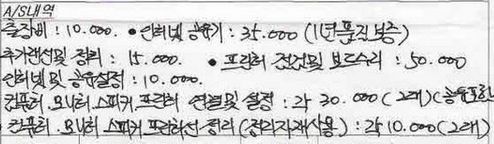 A/S내역
출장비 : 10.000. • 인터넷 공유기 : 35.000 (1년 무진보증)
추가랜선및 정리 : 15.000. • 프린터 점검및 보드수리 : 50.000
인터넷및 공유설정 : 10.000.
컴퓨터. 모니터. 스피커. 프린터 연결및 설정 : 각 30.000 (2대) (공유포함)
• 컴퓨터. 모니터. 스피커. 프린터선 정리 (정리자재사용) : 각 10.000 (2대)